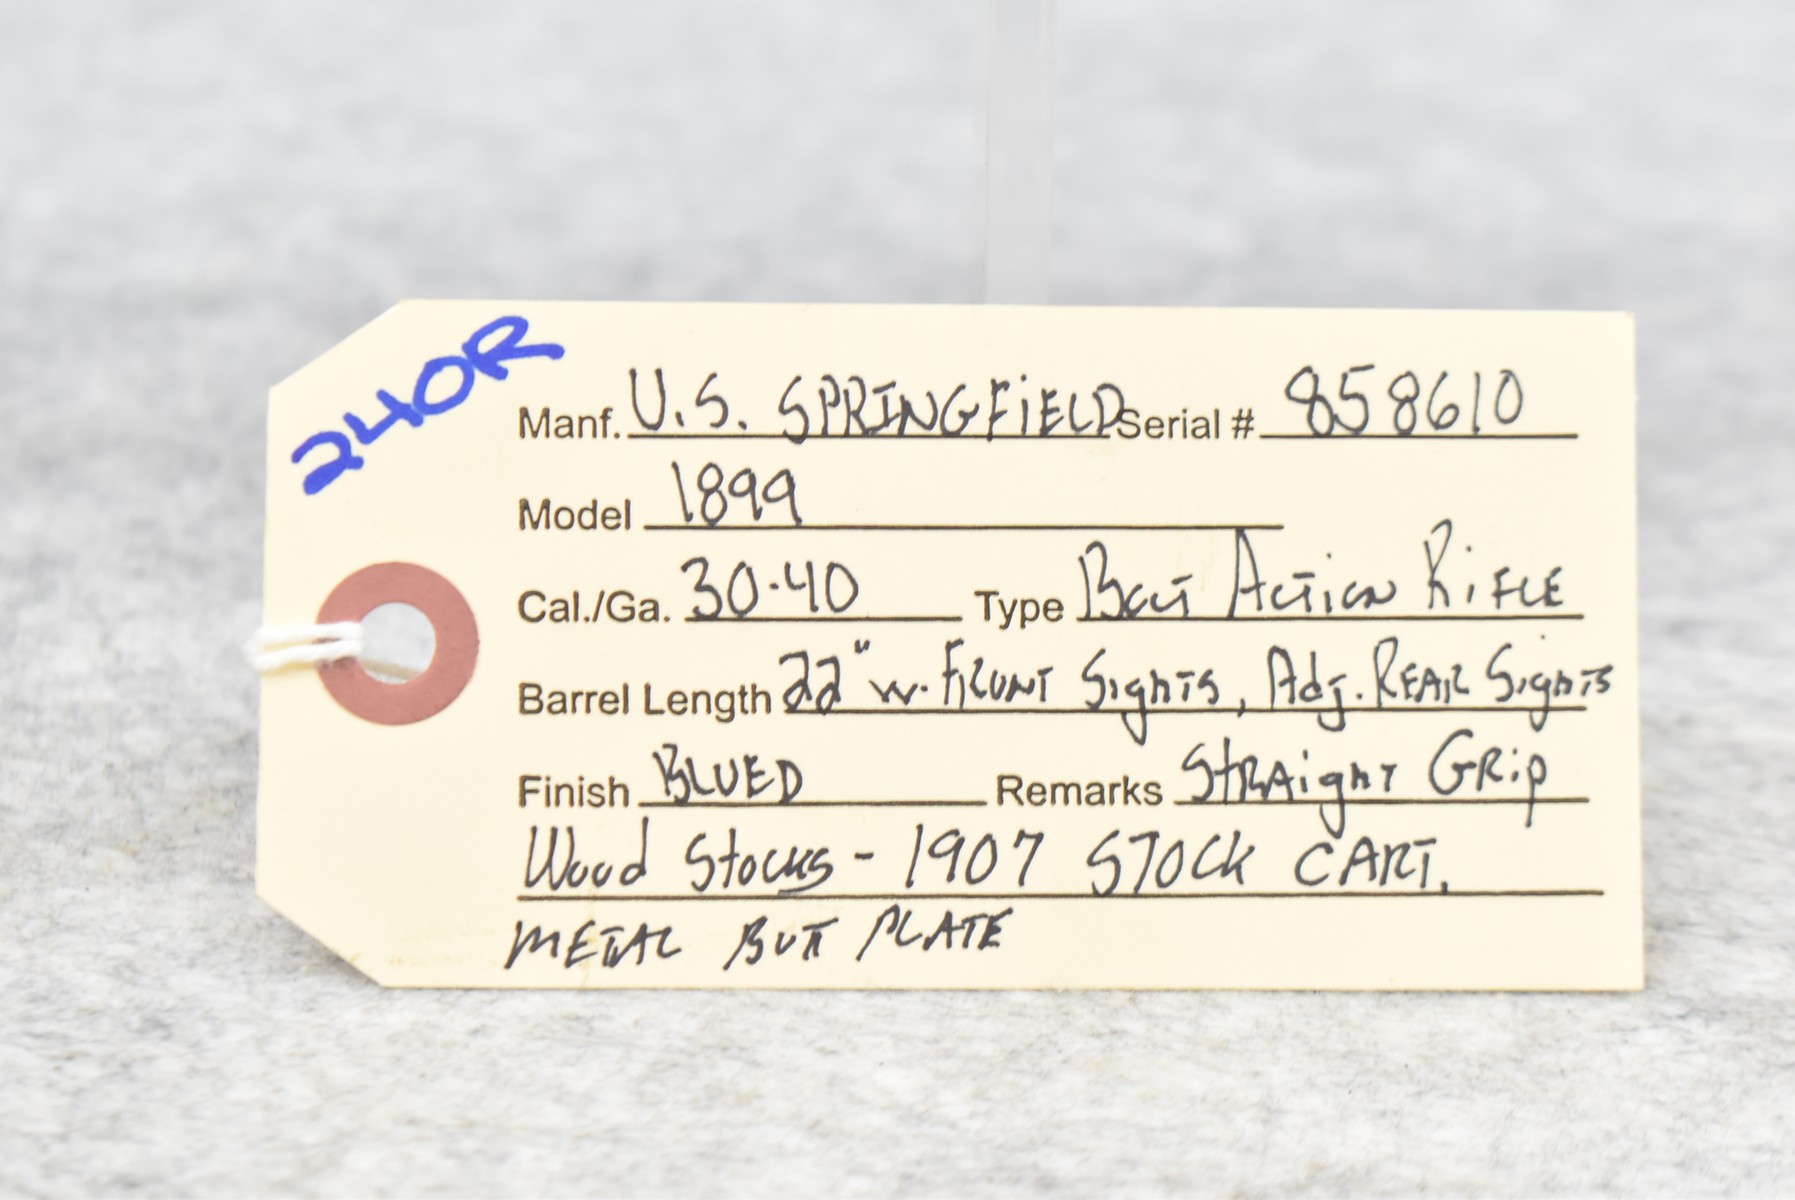 240R
Manf. U.S. SPRINGFIELD Serial # 858610
Model 1899
Cal./Ga. 30-40 Type Bolt Action Rifle
Barrel Length 22" w. Front Sights, Adj. Rear Sights
Finish BLUED Remarks Straight Grip
Wood Stocks - 1907 STOCK CART.
METAL BUTT PLATE